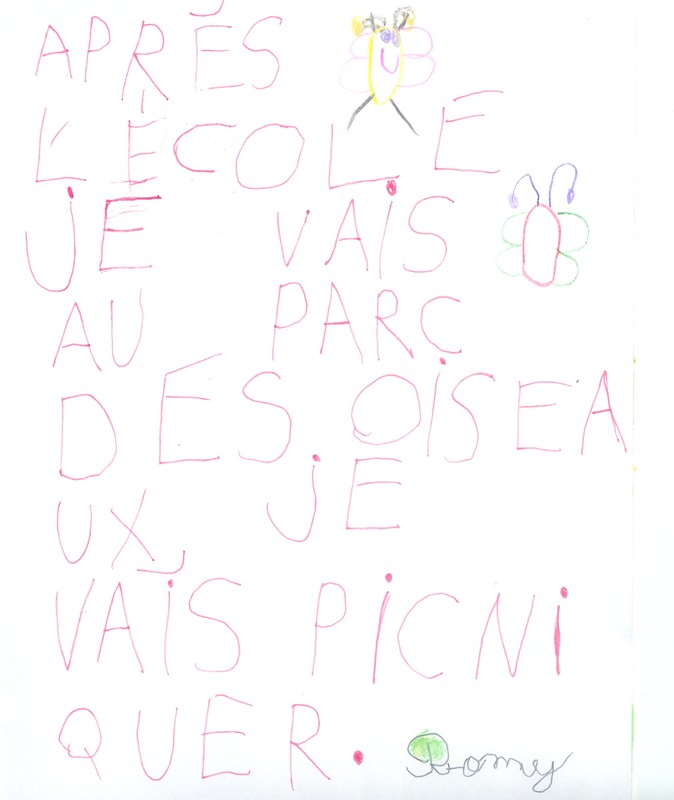 APRÈS
L'ÉCOLE
JE VAIS
AU PARC
DES OISEA
UX, JE
VAIS PICNI
QUER.
Romy